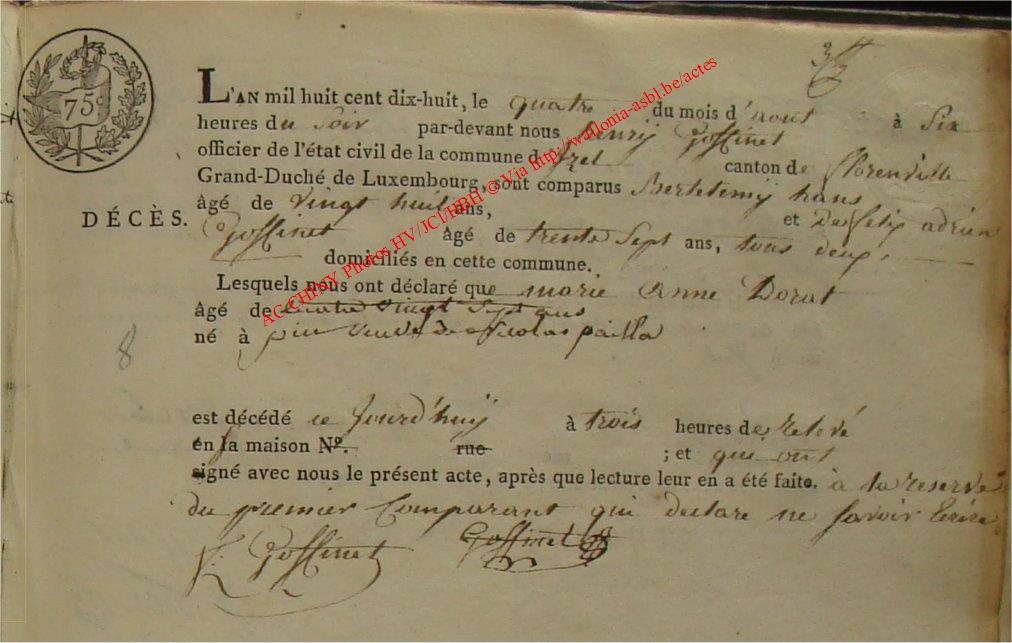 75c
L'AN mil huit cent dix-huit, le quatre du mois d'aout à Six
heures du Soir par-devant nous henrij Goffinet
officier de l'état civil de la commune d'izel canton de florenville
Grand-Duché de Luxembourg, sont comparus Berttemij hans
DÉCÈS. âgé de vingt huit ans, et de felix adrien
Goffinet âgé de trente Sept ans, tous deux,
domiciliés en cette commune.
Lesquels nous ont déclaré que marie Anne Dorat
âgé de quatre vingt Sept ans
né à pin veuve de Nicolas pailla
8
est décédé ce Jourd'huij à trois heures de relevé
en sa maison N°. rue ; et que ont
signé avec nous le présent acte, après que lecture leur en a été faite. à la reserve
du premier Comparant qui declare ne savoir Ecrire
Goffinet Goffinet
AC CHINY Photos HV/JCl/HBH © Via http://wallonia-asbl.be/actes